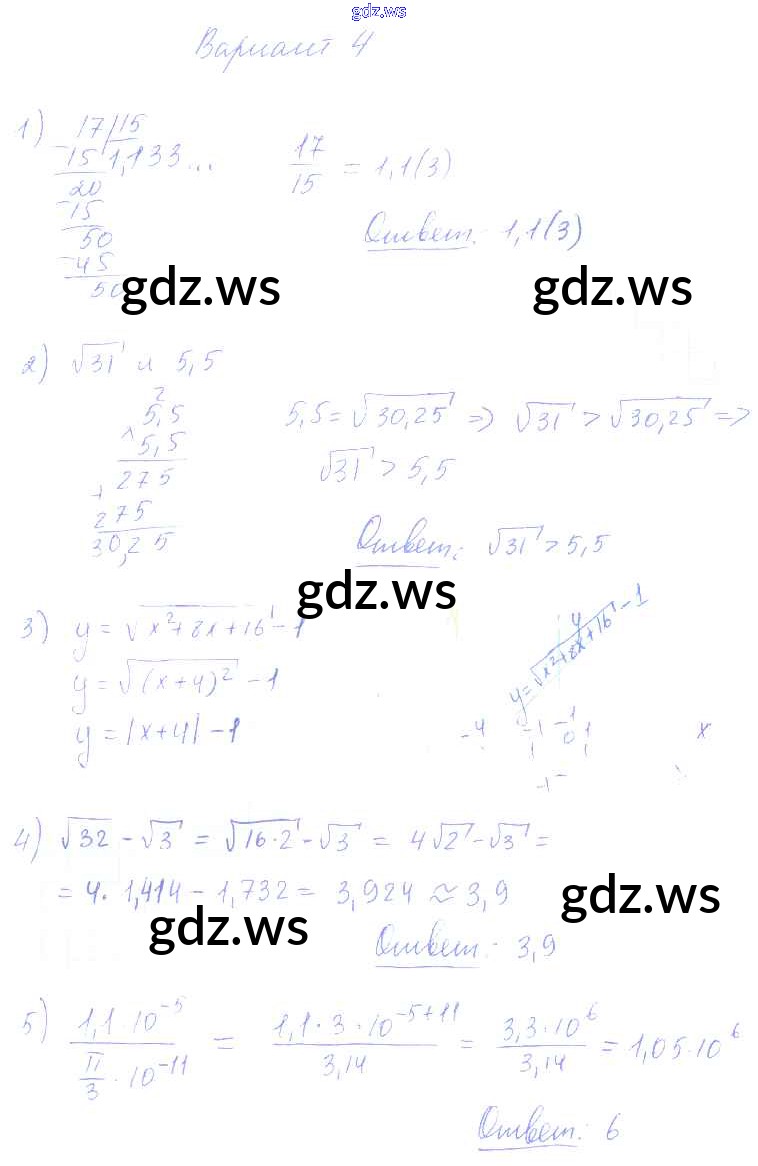 gdz.ws
Вариант 4
1) 17 | 15
- 15   1,133...
20
- 15
50
- 45
50
17/15 = 1,1(3)
Ответ: 1,1(3)
gdz.ws
gdz.ws
2) √31 и 5,5
2
5,5
× 5,5
275
+
275
30,25
5,5 = √30,25 => √31 > √30,25 =>
√31 > 5,5
Ответ: √31 > 5,5
gdz.ws
3) y = √x²+8x+16 - 1
y = √(x+4)² - 1
y = |x+4| - 1
y
y = √x²+8x+16 - 1
-4 -1 0 1 x
4) √32 - √3 = √16·2 - √3 = 4√2 - √3 =
= 4·1,414 - 1,732 = 3,924 ≈ 3,9
gdz.ws
gdz.ws
Ответ: 3,9
5) 1,1·10⁻⁵ / π/3·10⁻¹¹ = 1,1·3·10⁻⁵⁺¹¹ / 3,14 = 3,3·10⁶ / 3,14 = 1,05·10⁶
Ответ: 6